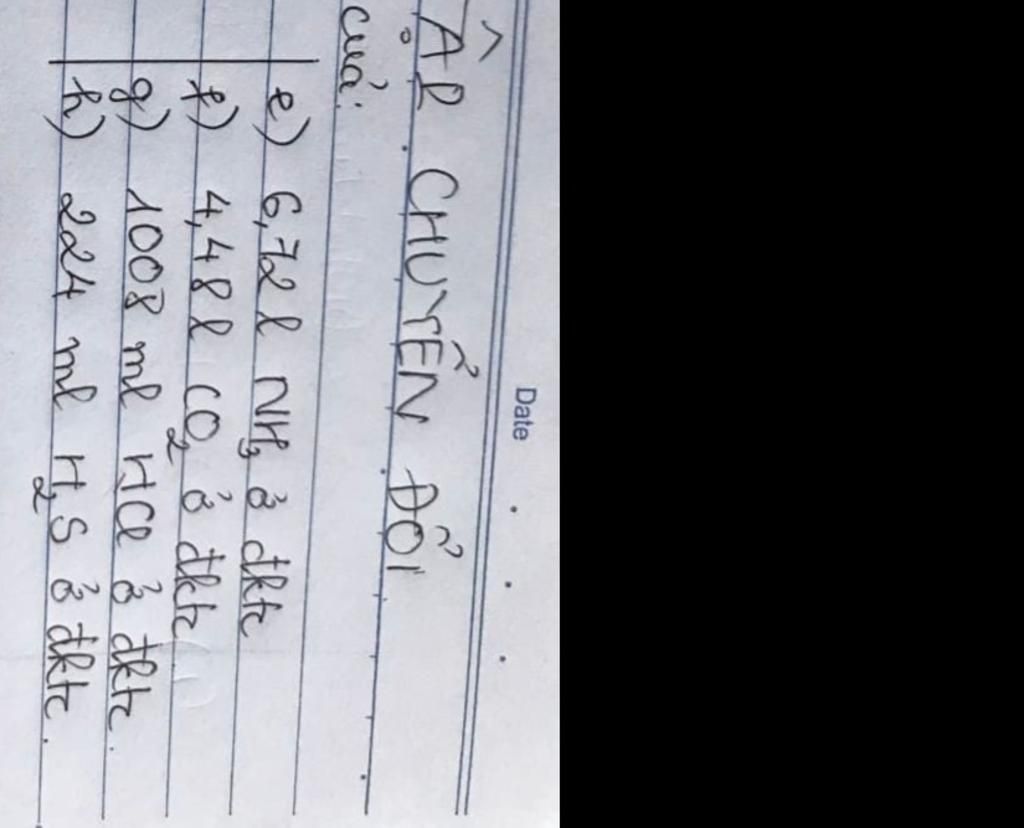 Date
ẬP CHUYỂN ĐỔI
của:
e) 6,72 l NH3 ở đktc
f) 4,48 l CO2 ở đktc
g) 1008 ml HCl ở đktc.
h) 224 ml H2S ở đktc.